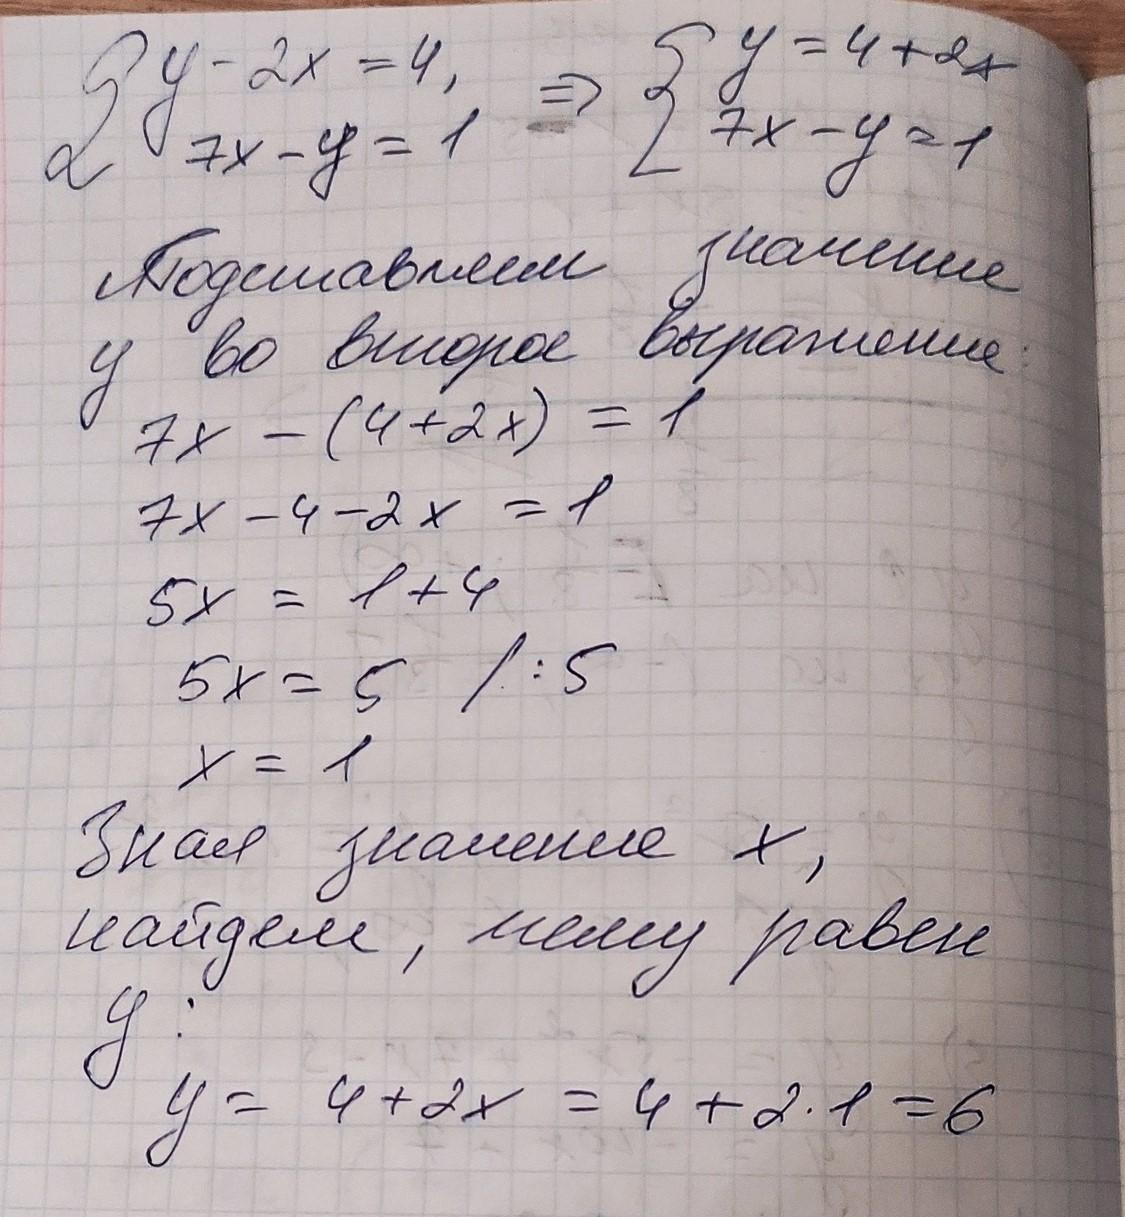 { y - 2x = 4, => { y = 4 + 2x
7x - y = 1 7x - y = 1
Подставляем значение
y во второе выражение:
7x - (4 + 2x) = 1
7x - 4 - 2x = 1
5x = 1 + 4
5x = 5 / : 5
x = 1
Зная значение x,
найдем, чему равен
y :
y = 4 + 2x = 4 + 2 · 1 = 6